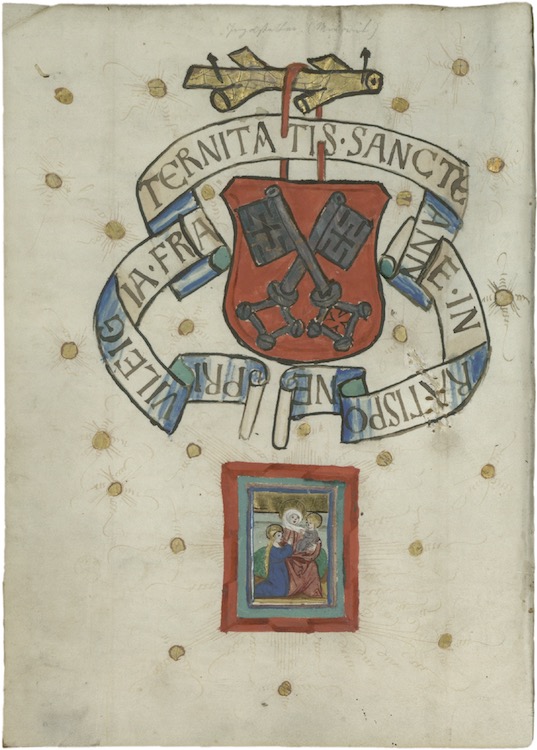 PRI
VILEIG
IA·FRA
TERNITATIS·SANCTE
ANN
E·IN
RATISPO
NE